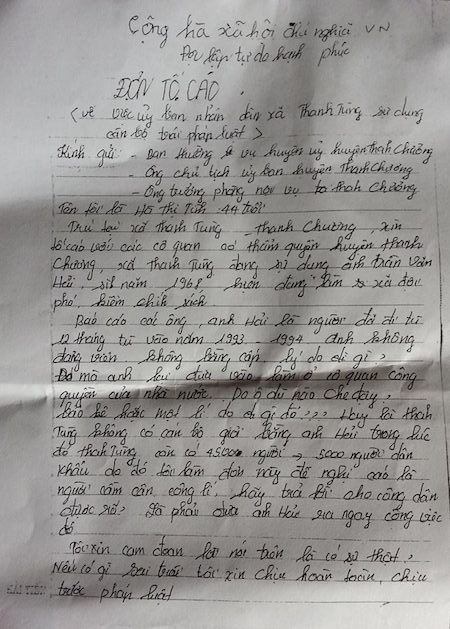 Cộng hà xã hội chủ nghiã VN
Đọc lập tự do hạnh phúc
ĐƠN TỐ CÁO
< về việc uỷ ban nhân dân xã Thanh Tùng sử dụng
cán bộ trái phán luật >
Kính gửi - Ban thường vụ huyện uỷ huyện Thanh Chương
- Ông chủ tịch uỷ ban huyện Thanh Chương
- Ông trưởng phòng nội vụ Thanh Chương
Tên tôi là Hà Thị Tình 44 tuổi
Trú tại xã Thanh Tùng Thanh Chương, xin
tố cáo với các cơ quan có thẩm quyền huyện thanh
Chương, xã thanh Tùng đang sử dụng anh trần văn
Hải, sn năm 1968 làm ở xã đội
phó, kiêm
Báo cáo các ông, anh Hải là người đã đi tù
12 tháng tù vào năm 1993 - 1994 anh không
đảng viên không bằng cấp lý do di gì?
Đó mà anh lại đưa vào làm ở cơ quan công
quyền của nhà nước. Do ô dù nào che đậy,
bảo bê hoặc một lí do di gì đó??? Hay là thanh
Tùng không có cán bộ giỏi bằng anh Hải trong lúc
đó thanh Tùng còn có 45000 người → 5000 người dân
khẩu do đó tôi làm đơn này đề nghị
người cầm cân, công lí, hãy trả lời cho công dân
được rõ? Và phải đưa anh Hải ra ngay công việc
đó
Tôi xin cam đoan lời nói trên là có sự thật,
Nếu có gì sai trái tôi xin chịu hoàn toàn, chịu
trước phan luật